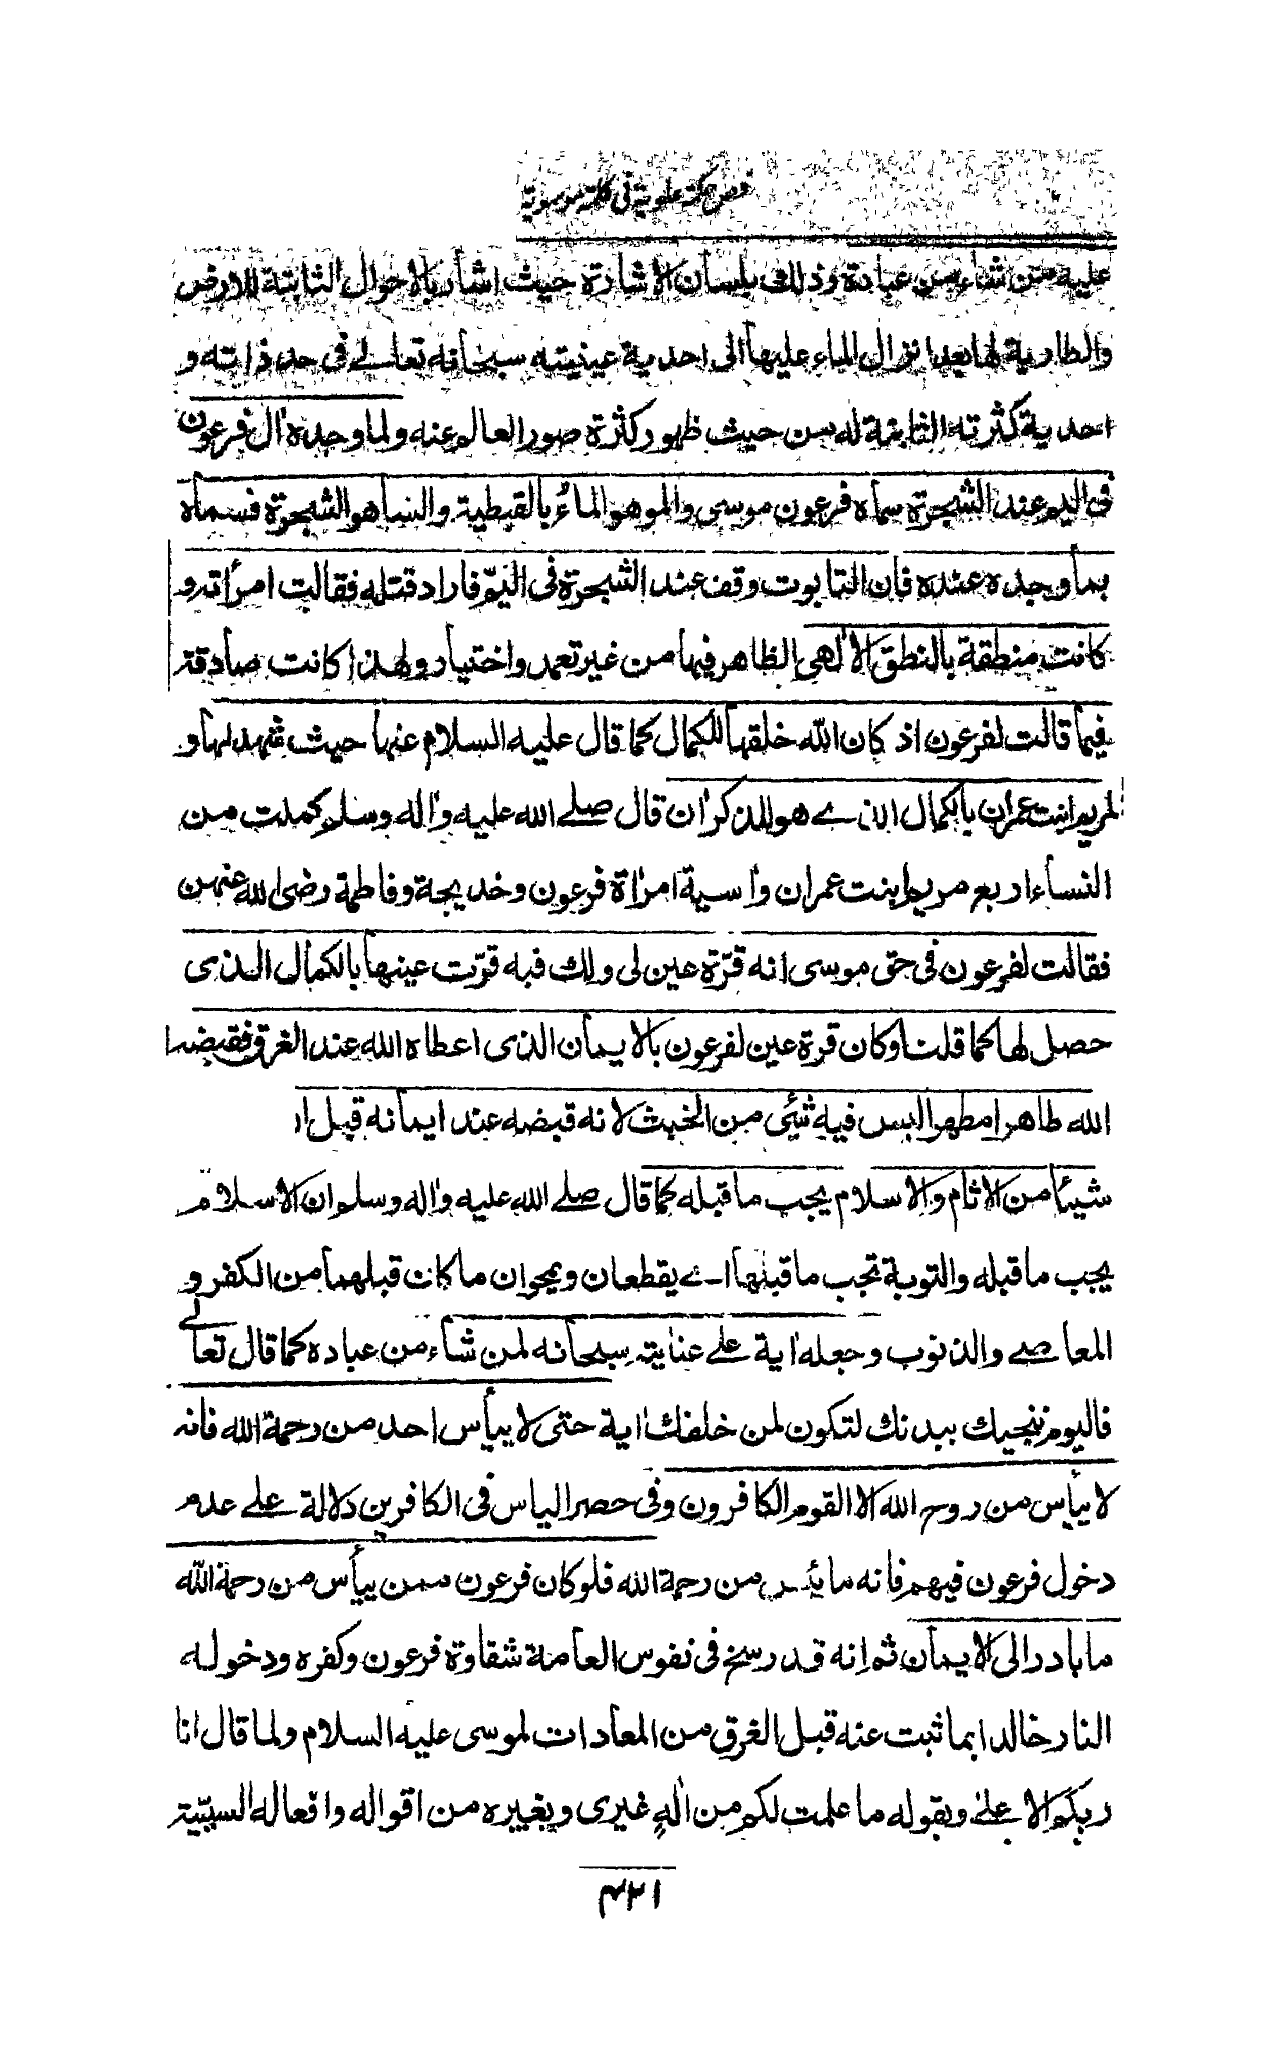 فص حكمة علوية في كلمة موسوية
عليه من شاء من عبادة وذلك بلسان الاشارة حيث اشار بالاحوال الثابتة للارض
والطارية لها بعد انزال الماء عليها الى احدية عينيته سبحانه تعالے فى حد ذاته و
احدية كثرته الثابتة له من حيث ظهور كثرة صور العالم عنه ولما وجده اٰل فرعون
فى اليم عند الشجرة سماه فرعون موسى والمو هو الماءُ بالقبطية والسا هو الشجرة فسماه
بما وجده عنده فان التابوت وقف عند الشجرة فى اليمّ فاراد قتله فقالت امرأته و
كانت منطقة بالنطق الالٰهى الظاهر فيها من غير تعمد واختيار ولهذا كانت صادقة
فيما قالت لفرعون اذ كان الله خلقها للكمال كما قال عليه السلام عنها حيث شهد لها و
لمريم ابنت عمران بالكمال الذے هو للذكران قال صلے الله عليه واٰله وسلم كملت من
النساء اربع مريم ابنت عمران واٰسية امراة فرعون وخديجة وفاطمة رضى الله عنهن
فقالت لفرعون فى حق موسى انه قرّة عين لى ولك فبه قرّت عينها بالكمال الذى
حصل لها كما قلنا وكان قرة عين لفرعون بالايمان الذى اعطاه الله عند الغرق فقبضه
الله طاهرا مطهرا ليس فيه شئى من الخبث لانه قبضه عند ايمانه قبل ا
شيئا من الاثام والاسلام يجب ما قبله كما قال صلے الله عليه واٰله وسلم ان الاسلام
يجب ما قبله والتوبة تجب ما قبلها اے يقطعان ويمحوان ما كان قبلهما من الكفر و
المعاصے والذنوب وجعله اٰية علے عنايته سبحانه لمن شاء من عباده كما قال تعالے
فاليوم ننجيك ببدنك لتكون لمن خلفك اٰية حتى لا ييأس احد من رحمة الله فانه
لا ييأس من روح الله الا القوم الكافرون وفى حصر الياس فى الكافرين دلالة علے عدم
دخول فرعون فيهم فانه ما يئس من رحمة الله فلو كان فرعون ممن ييأس من رحمة الله
ما بادر الى الايمان ثم انه قد رسخ فى نفوس العامة شقاوة فرعون وكفره ودخوله
النار خالدا بما ثبت عنه قبل الغرق من المعادات لموسى عليه السلام ولما قال انا
ربكم الاعلےٰ وبقوله ما علمت لكم من الٰهٍ غيرى وبغيره من اقواله وافعاله السيّئة
۴۲۱